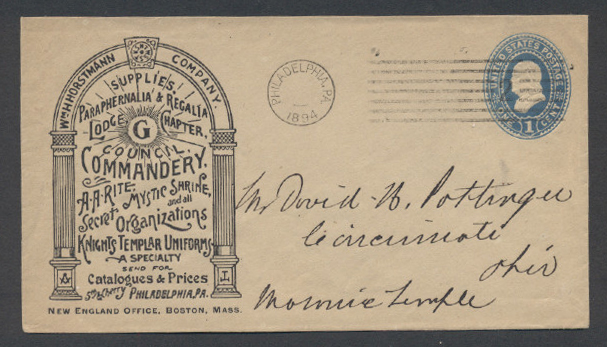 WM. H. HORSTMANN COMPANY.
SUPPLIES,
PARAPHERNALIA & REGALIA
LODGE G CHAPTER,
COUNCIL
COMMANDERY.
A.A. RITE. MYSTIC SHRINE,
and all
Secret Organizations
KNIGHTS TEMPLAR UNIFORMS
A SPECIALTY
SEND FOR
Catalogues & Prices
5th & Cherry PHILADELPHIA, PA.
NEW ENGLAND OFFICE, BOSTON, MASS.
PHILADELPHIA, PA.
1894
UNITED STATES POSTAGE
ONE 1 CENT
Mr David N. Pottinger
Cincinnati
Ohio
Masonic Temple